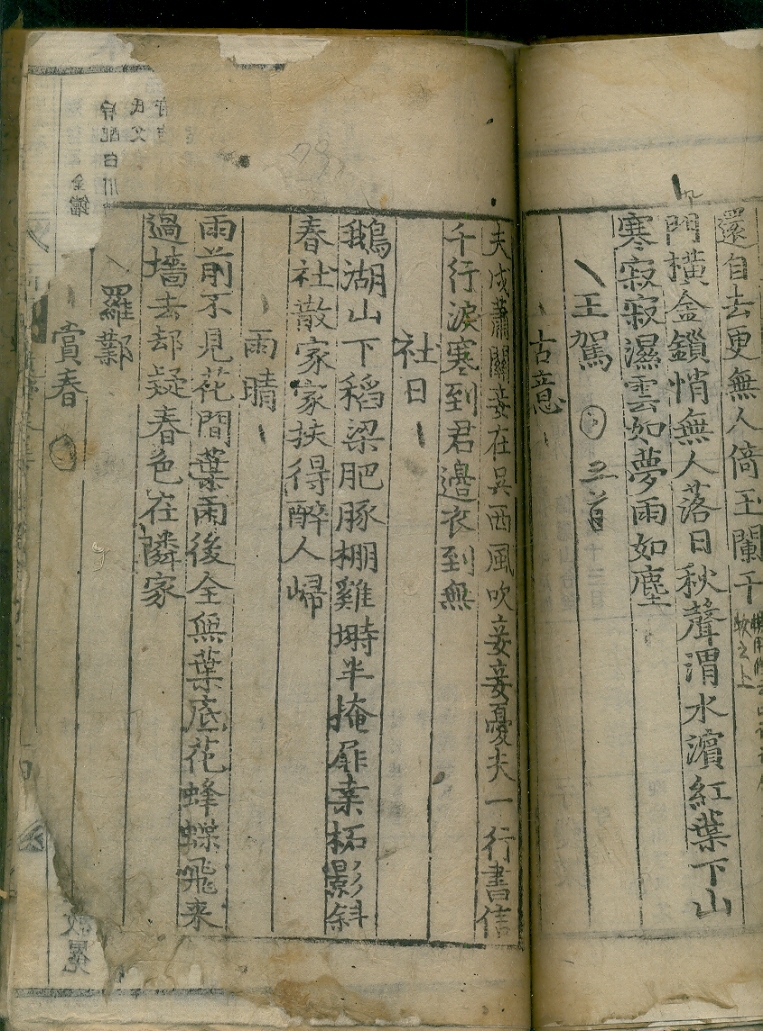 還自去更無人倚玉闌干
門橫金鎖悄無人落日秋聲渭水濱紅葉下山
寒寂寂濕雲如夢雨如塵
王駕 三首
古意
夫戍蕭關妾在吳西風吹妾妾憂夫一行書信
千行淚寒到君邉衣到無
社日
鵝湖山下稻梁肥豚柵雞塒半掩扉桒柘影斜
春社散家家扶得醉人歸
雨晴
雨前不見花間葉雨後全無葉底花蜂蝶飛来
過墻去却疑春色在隣家
羅鄴
賞春